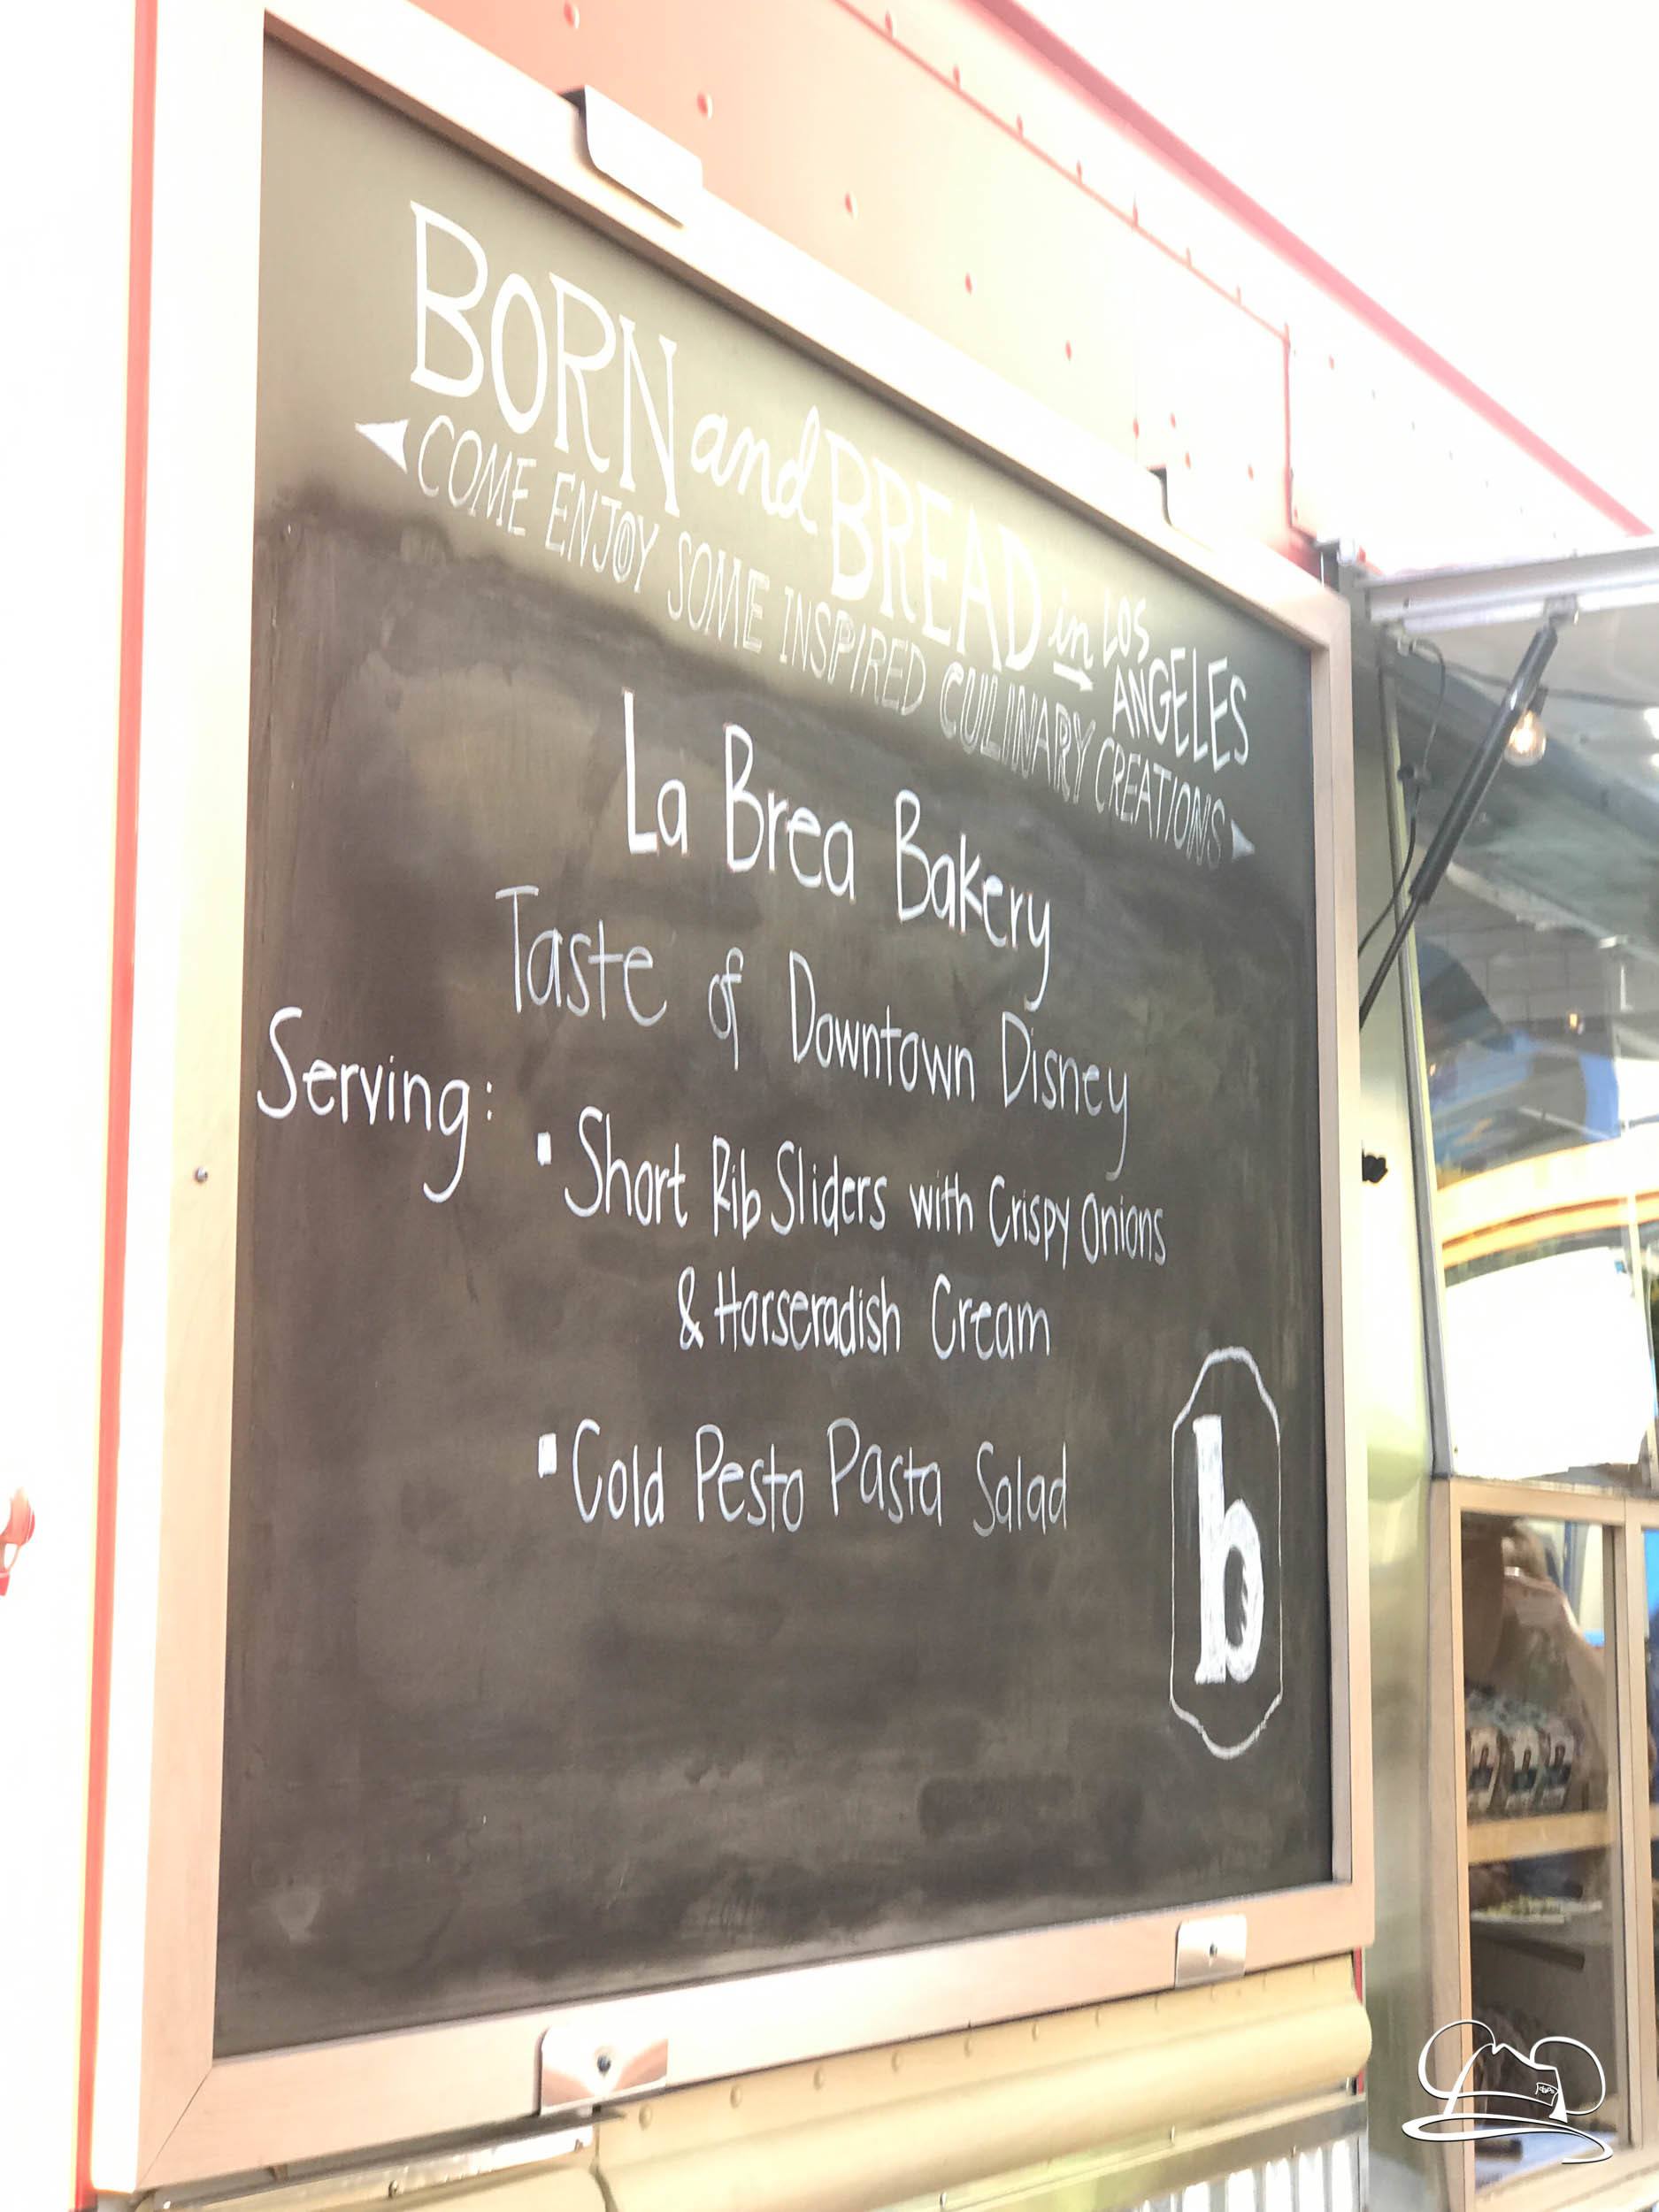 BORN and BREAD in LOS ANGELES
COME ENJOY SOME INSPIRED CULINARY CREATIONS
La Brea Bakery
Taste of Downtown Disney
Serving:
▪ Short Rib Sliders with Crispy Onions
& Horseradish Cream
▪ Cold Pesto Pasta Salad
b